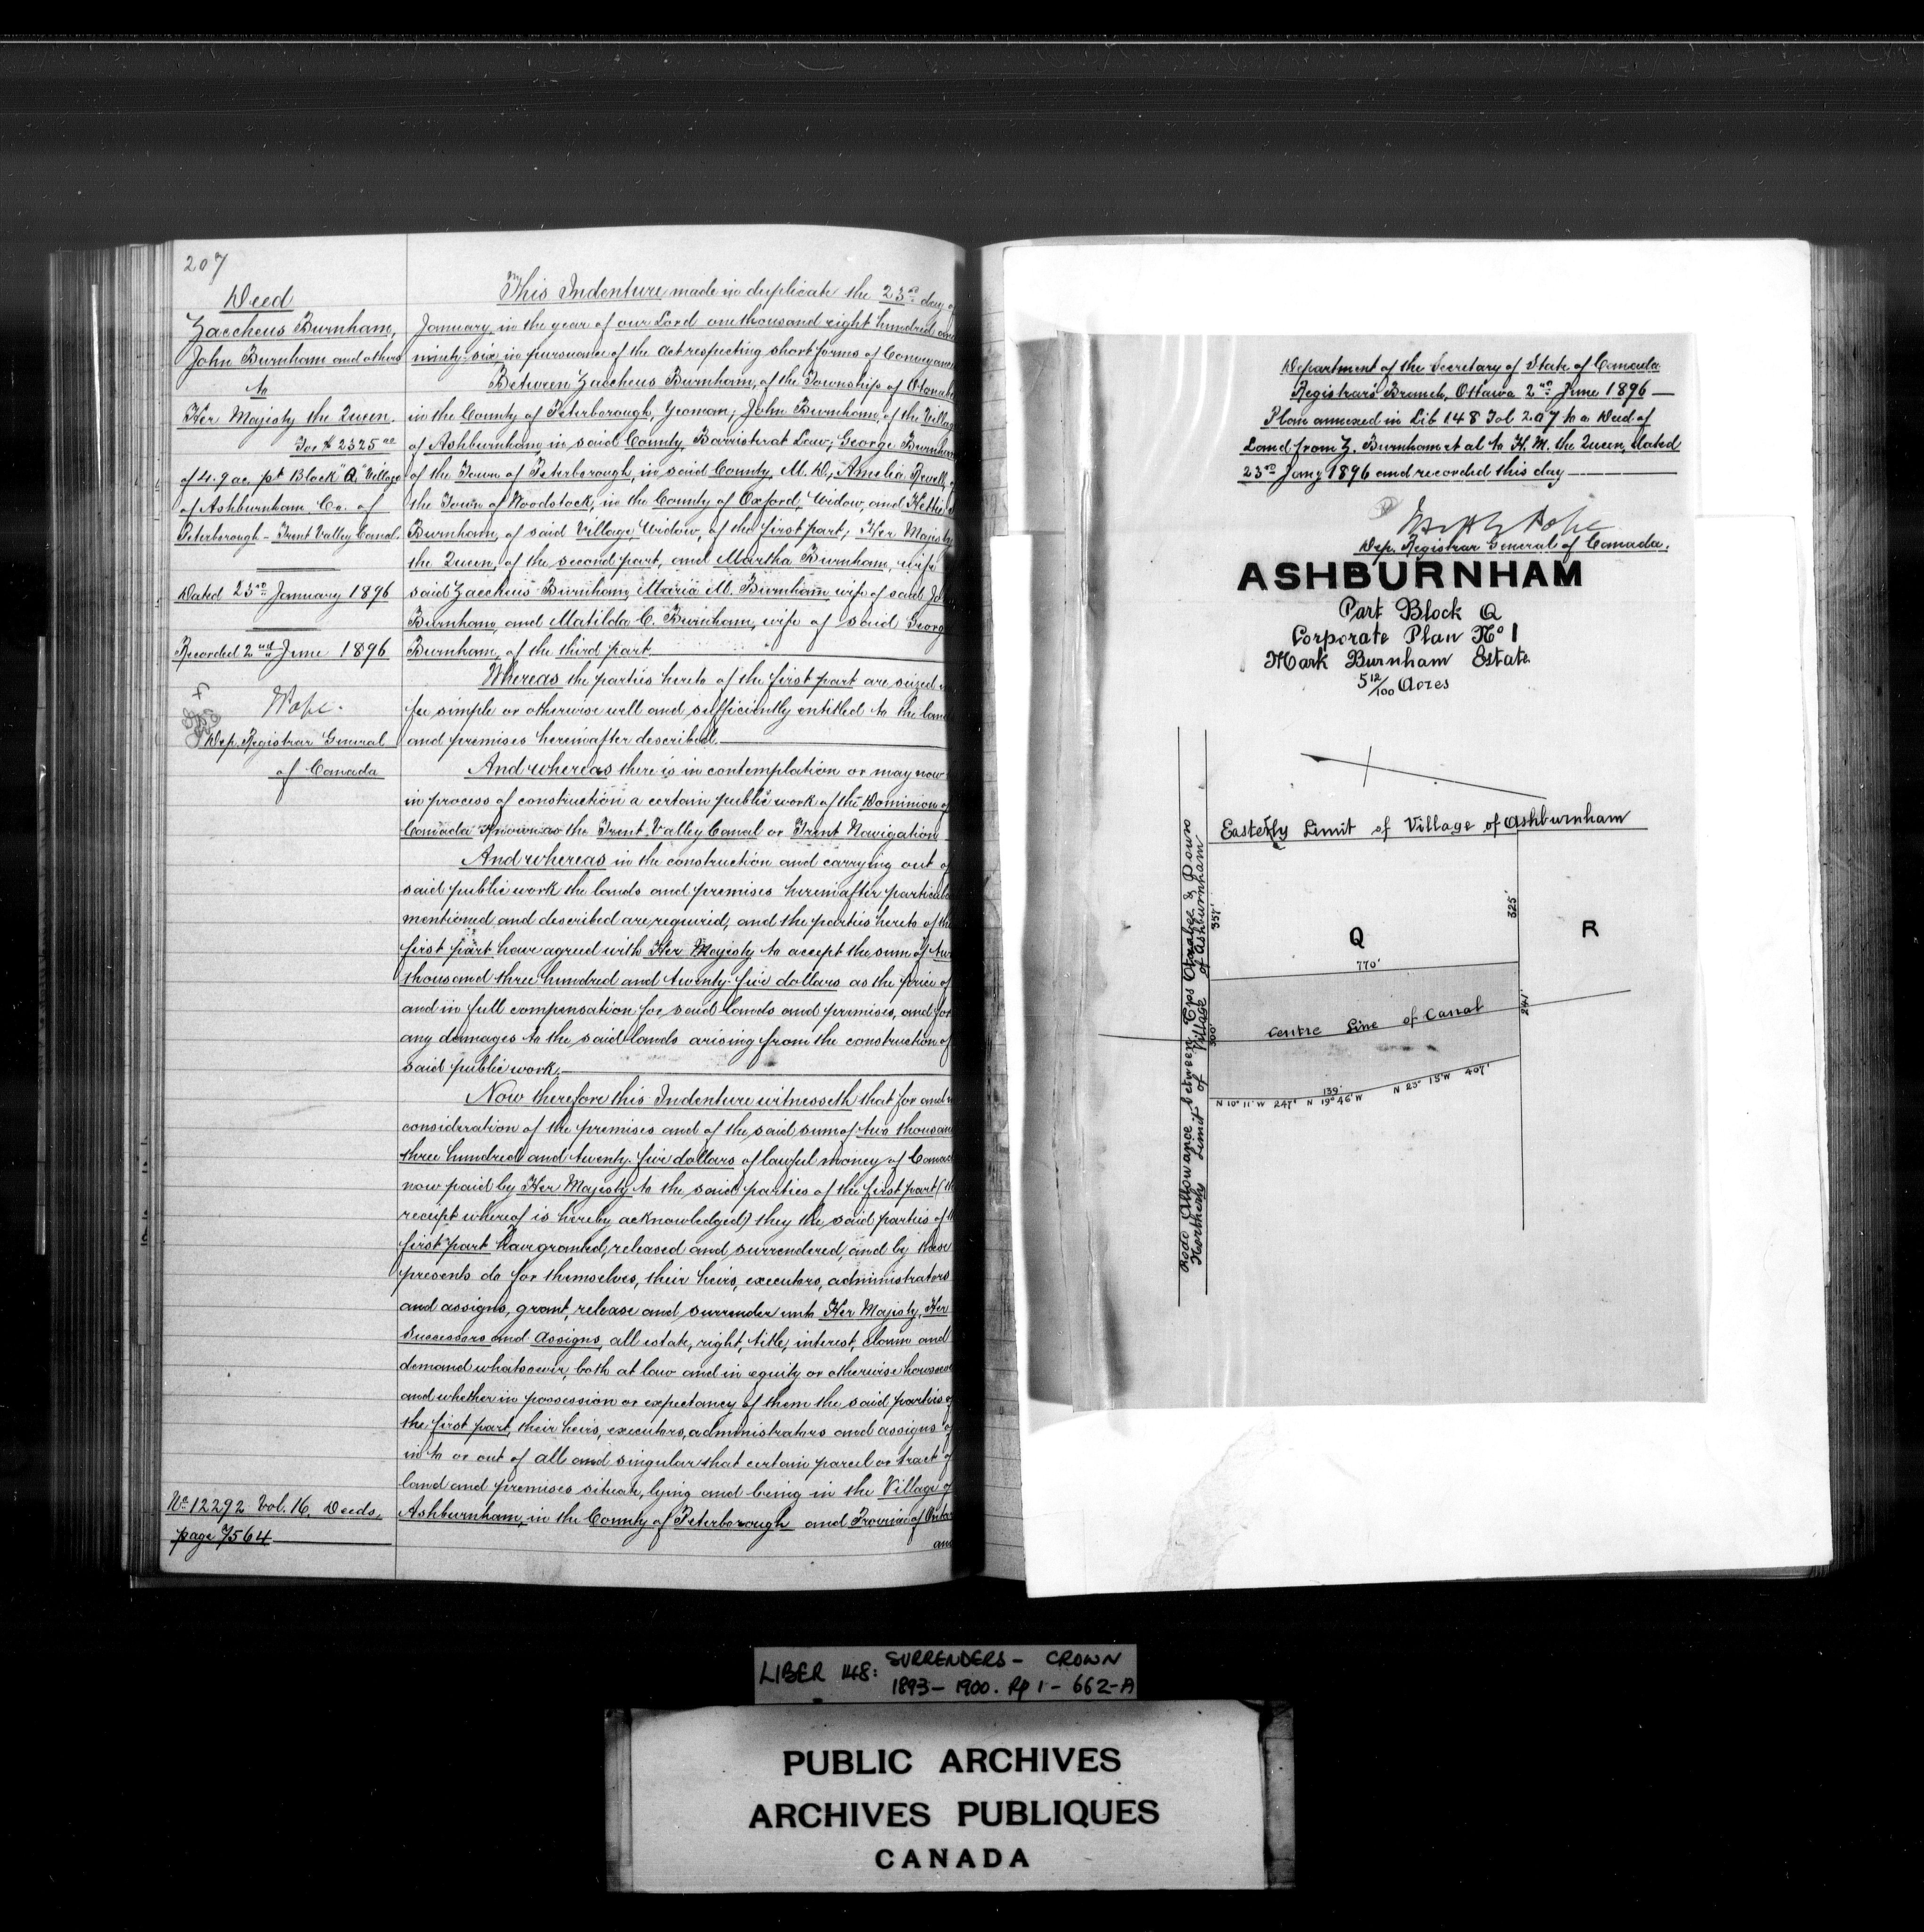 207
Deed
Zaccheus Burnham,
John Burnham and others
to
Her Majesty the Queen.
For $ 2325 00
of 4.9 ac. pt Block "Q" Village
of Ashburnham Co. of
Peterborough - Trent Valley Canal.
Dated 23rd January 1896
Recorded 2nd June 1896
Pope.
Dep. Registrar General
of Canada
No 12292 Vol. 16. Deeds,
page 7564
This Indenture made in duplicate the 23rd day of
January, in the year of our Lord one thousand eight hundred and
ninety-six in pursuance of the Act respecting short forms of Conveyances
Between Zaccheus Burnham, of the Township of Otonabee
in the County of Peterborough, Yeoman; John Burnham, of the Village
of Ashburnham, in said County, Barrister at Law; George Burnham
of the Town of Peterborough, in said County, M. D., Amelia
the Town of Woodstock, in the County of Oxford, Widow, and
Burnham, of said Village, Widow, of the first part; Her Majesty
the Queen, of the second part, and Martha Burnham, wife
said Zaccheus Burnham, Maria M. Burnham, wife of said Jo
Burnham, and Matilda C. Burnham, wife of said George
Burnham, of the third part.
Whereas the parties hereto of the first part are seized
fee simple or otherwise well and sufficiently entitled to the land
and premises hereinafter described.
And whereas there is in contemplation or may now
in process of construction a certain public work of the Dominion of
Canada known as the Trent Valley Canal or Trent Navigation
And whereas in the construction and carrying out of
said public work the lands and premises hereinafter particula
mentioned and described are required, and the parties hereto of the
first part have agreed with Her Majesty to accept the sum of two
thousand three hundred and twenty-five dollars as the price of
and in full compensation for said lands and premises, and for
any damages to the said lands arising from the construction of
said public work.
Now therefore this Indenture witnesseth that for and
consideration of the premises and of the said sum of two thousand
three hundred and twenty-five dollars of lawful money of Canad
now paid by Her Majesty to the said parties of the first part (th
receipt whereof is hereby acknowledged) they the said parties of th
first part have granted, released and surrendered, and by these
presents do for themselves, their heirs, executors, administrators
and assigns, grant, release and surrender unto Her Majesty, Her
Successors and Assigns, all estate, right, title, interest, claim and
demand whatsoever, both at law and in equity or otherwise howsoev
and whether in possession or expectancy of them the said parties of
the first part, their heirs, executors, administrators and assigns of
in to or out of all and singular that certain parcel or tract of
land and premises situate, lying and being in the Village of
Ashburnham, in the County of Peterborough and Province of Ontar
and
Department of the Secretary of State of Canada
Registrar's Branch, Ottawa 2nd June 1896
Plan annexed in Lib 148 Fol 207 to a Deed of
Land from Z. Burnham et al to H. M. the Queen, dated
23rd Jany 1896 and recorded this day
Joseph Pope
Dep. Registrar General of Canada.
ASHBURNHAM
Part Block Q
Corporate Plan No 1
Mark Burnham Estate
5 12/100 Acres
Easterly Limit of Village of Ashburnham
Road Allowance between Tps Otonabee & Douro
Northerly Limit of Village of Ashburnham
357'
325'
Q
R
770'
300'
241'
Centre Line of Canal
N 10° 11' W 247'
139'
N 19° 46' W
N 25° 15' W 407'
LIBER 148: SURRENDERS - CROWN
1893 - 1900. Pp 1 - 662-A
PUBLIC ARCHIVES
ARCHIVES PUBLIQUES
CANADA